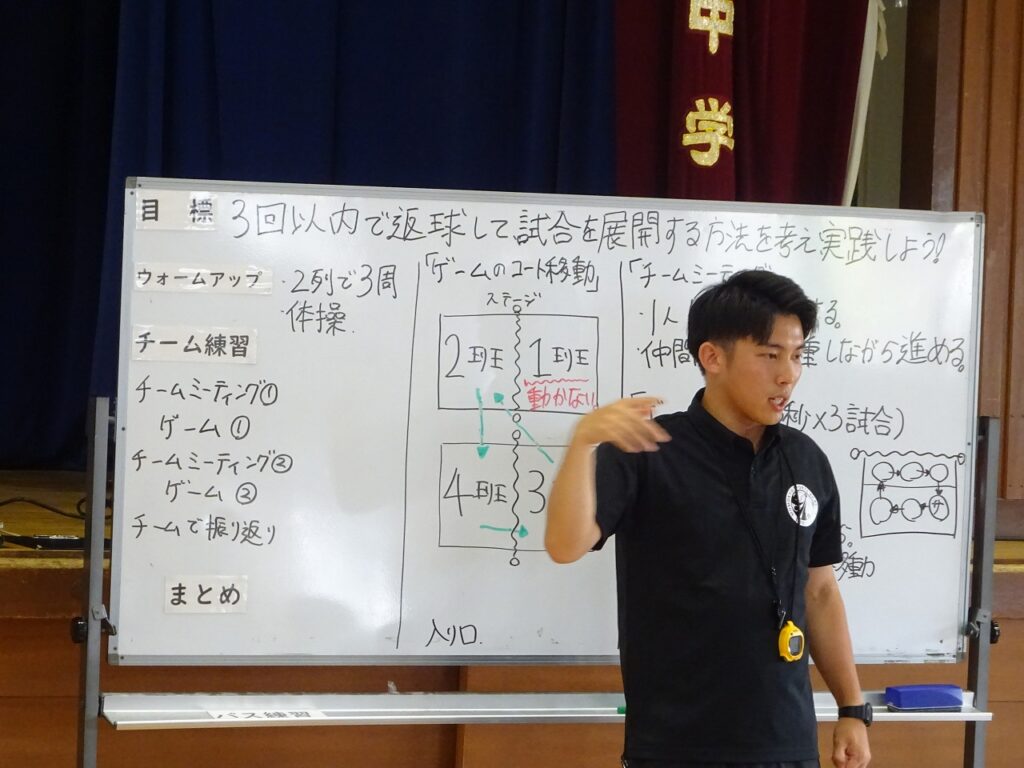 中学
目標
3回以内で返球して試合を展開する方法を考え実践しよう!
ウォームアップ
・2列で3周
・体操
チーム練習
チームミーティング①
ゲーム①
チームミーティング②
ゲーム②
チームで振り返り
まとめ
「ゲームのコート移動」
ステージ
2班
1班
動かない
4班
3
入り口
「チームミーティング
・1人
する。
・仲間
重しながら進める。
秒×3試合)
サ
る。
移動
パス練習